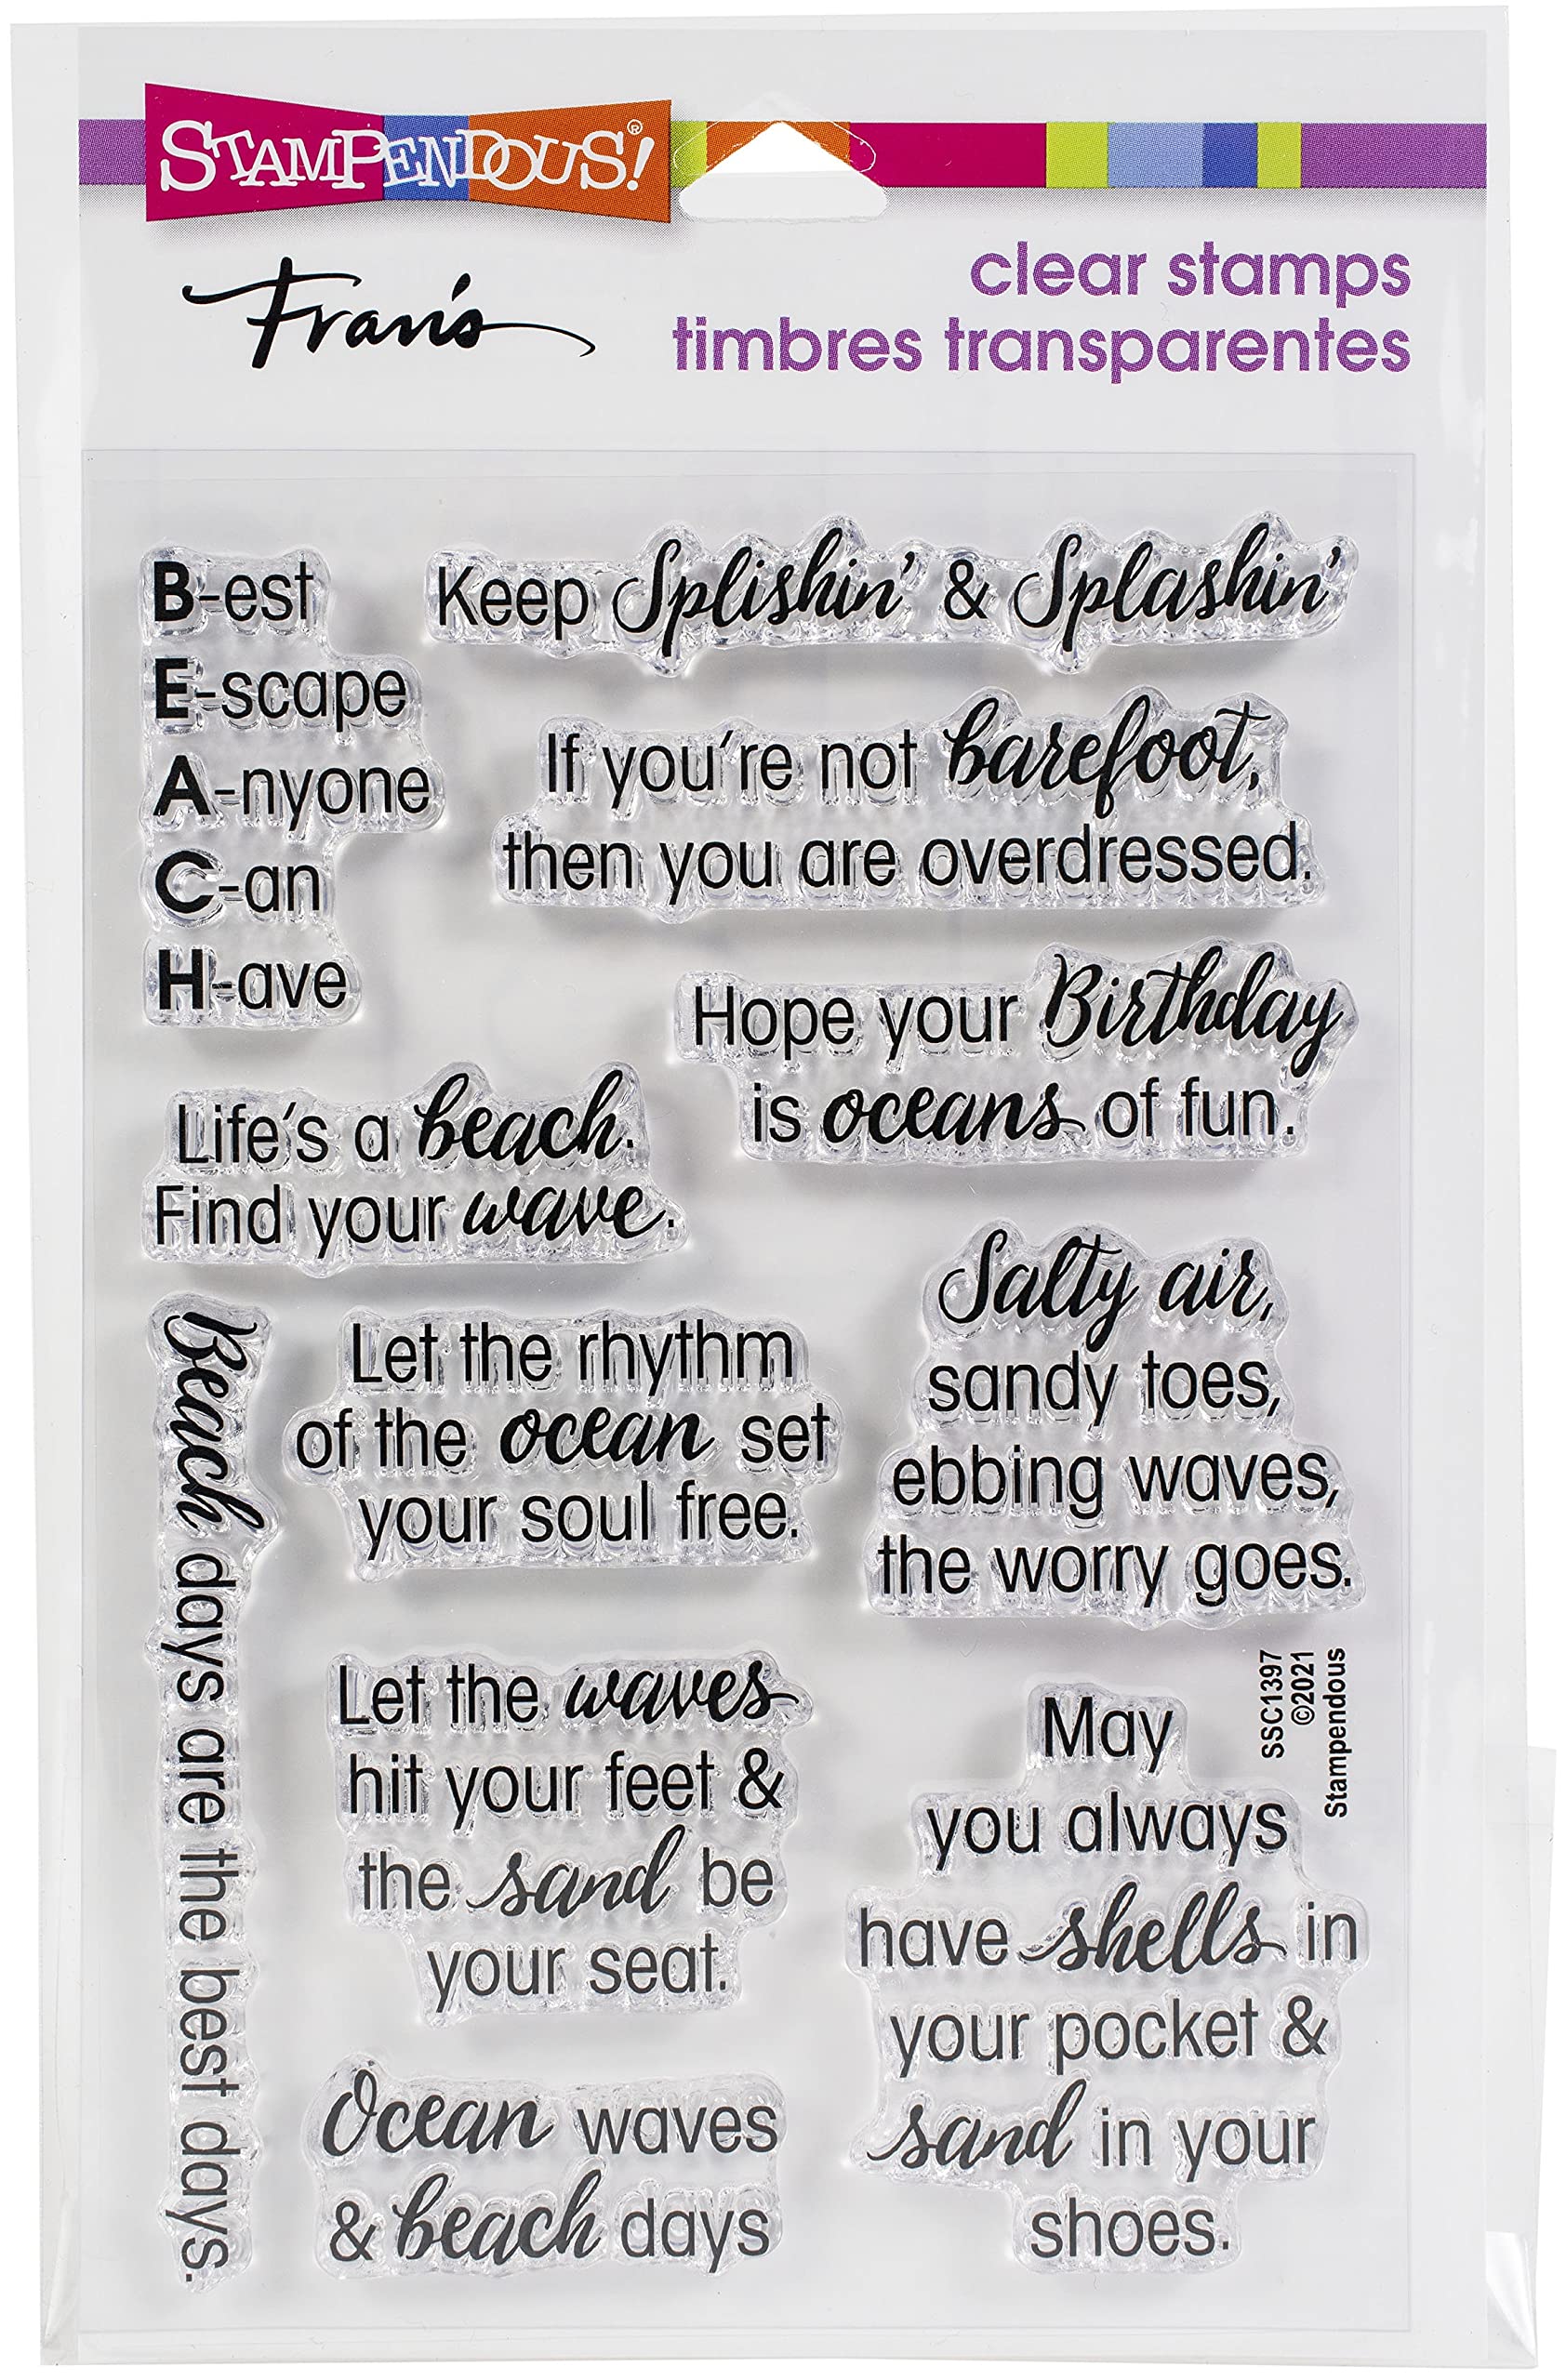 STAMPENDOUS!®
Fran's
clear stamps
timbres transparentes
B-est
E-scape
A-nyone
C-an
H-ave
Keep Splishin' & Splashin'
If you're not barefoot,
then you are overdressed.
Hope your Birthday
is oceans of fun.
Life's a beach.
Find your wave.
Beach days are the best days.
Let the rhythm
of the ocean set
your soul free.
Salty air,
sandy toes,
ebbing waves,
the worry goes.
Let the waves
hit your feet &
the sand be
your seat.
SSC1397
©2021
Stampendous
May
you always
have shells in
your pocket &
sand in your
shoes.
Ocean waves
& beach days